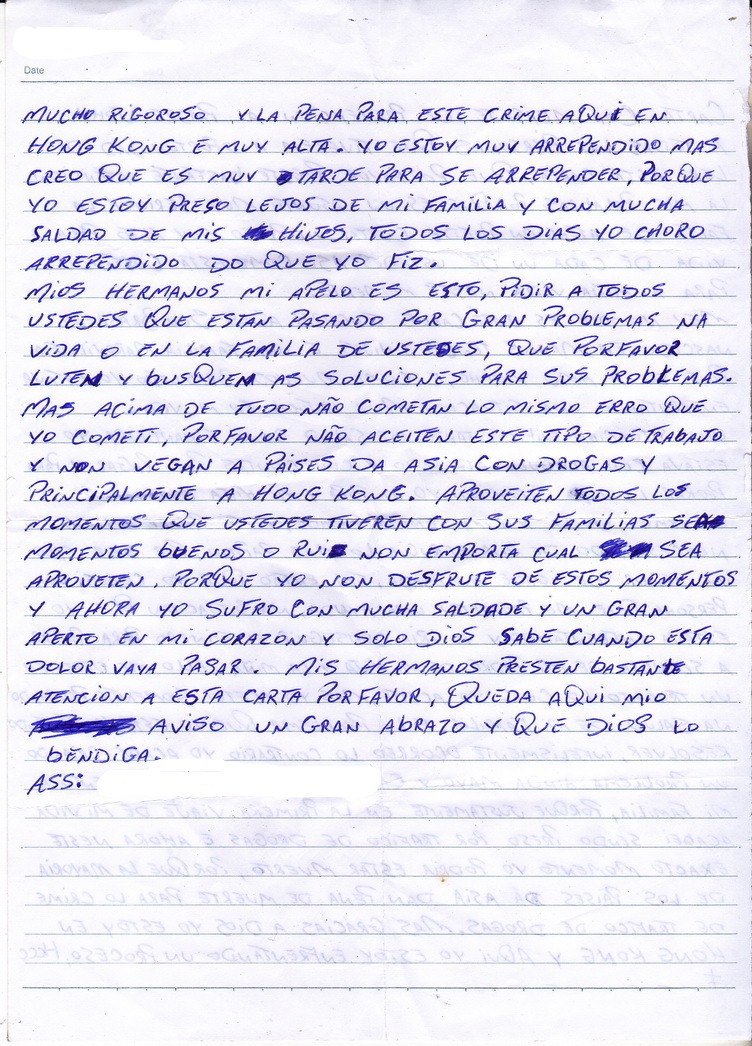 Date
MUCHO RIGOROSO Y LA PENA PARA ESTE CRIME AQUI EN
HONG KONG E MUY ALTA. YO ESTOY MUY ARREPENDIDO MAS
CREO QUE ES MUY TARDE PARA SE ARREPENDER, PORQUE
YO ESTOY PRESO LEJOS DE MI FAMILIA Y CON MUCHA
SALDAD DE MIS HIJOS, TODOS LOS DIAS YO CHORO
ARREPENDIDO DO QUE YO FIZ.
MIOS HERMANOS MI APELO ES ESTO, PIDIR A TODOS
USTEDES QUE ESTAN PASANDO POR GRAN PROBLEMAS NA
VIDA O EN LA FAMILIA DE USTEDES, QUE PORFAVOR
LUTEN Y BUSQUEM AS SOLUCIONES PARA SUS PROBLEMAS.
MAS ACIMA DE TUDO NÃO COMETAN LO MISMO ERRO QUE
YO COMETI, PORFAVOR NÃO ACEITEN ESTE TIPO DE TRABAJO
Y NON VEGAN A PAISES DA ASIA CON DROGAS Y
PRINCIPALMENTE A HONG KONG. APROVEITEN TODOS LOS
MOMENTOS QUE USTEDES TIVEREN CON SUS FAMILIAS SEA
MOMENTOS BUENOS O RUI NON EMPORTA CUAL SEA
APROVETEN. PORQUE YO NON DESFRUTE DE ESTOS MOMENTOS
Y AHORA YO SUFRO CON MUCHA SALDADE Y UN GRAN
APERTO EN MI CORAZON Y SOLO DIOS SABE CUANDO ESTA
DOLOR VAYA PASAR. MIS HERMANOS PRESTEN BASTANTE
ATENCION A ESTA CARTA PORFAVOR, QUEDA AQUI MIO
AVISO UN GRAN ABRAZO Y QUE DIOS LO
BENDIGA.
ASS: